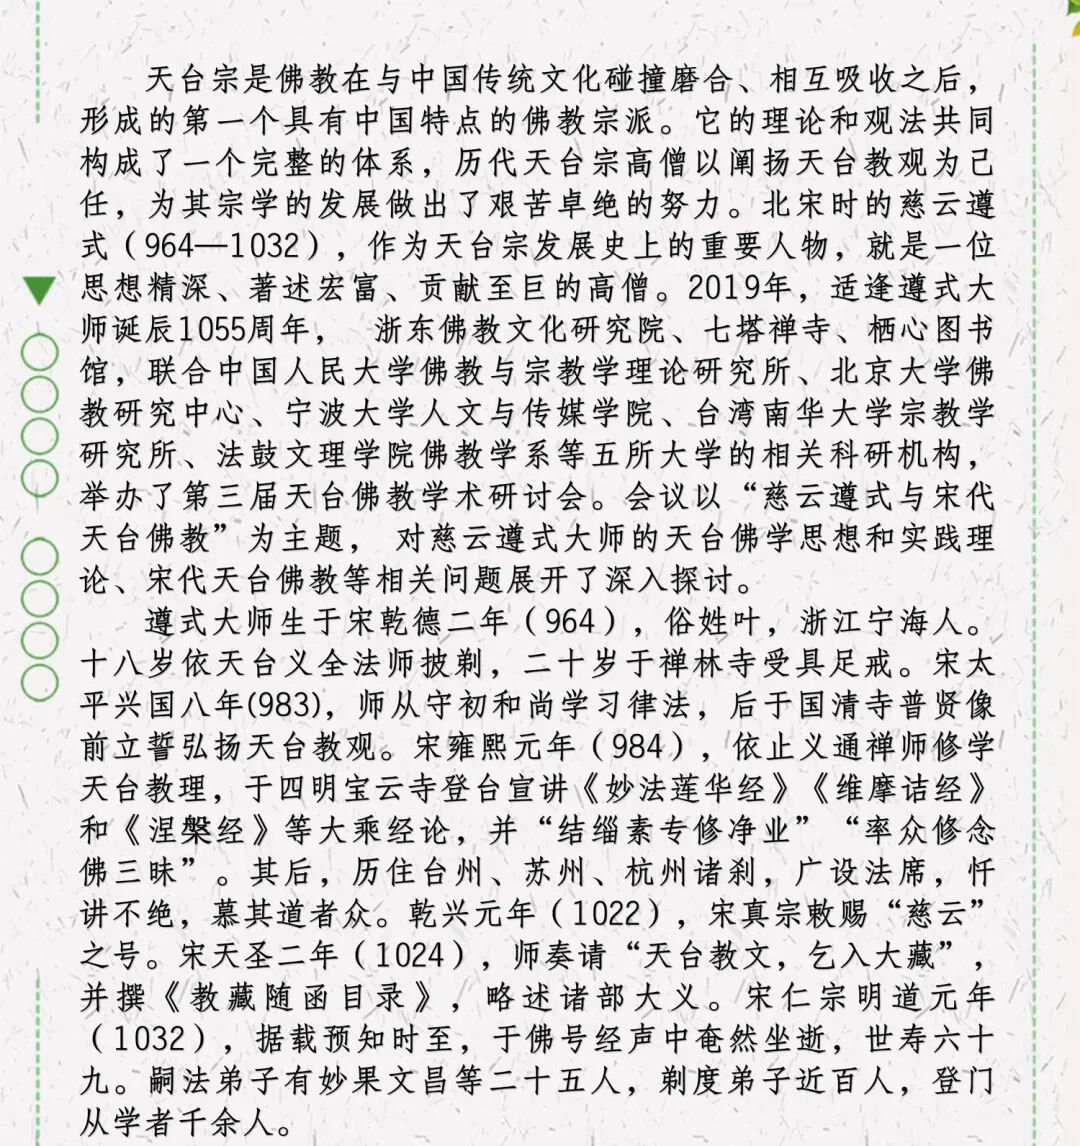 天台宗是佛教在与中国传统文化碰撞磨合、相互吸收之后，
形成的第一个具有中国特点的佛教宗派。它的理论和观法共同
构成了一个完整的体系，历代天台宗高僧以阐扬天台教观为己
任，为其宗学的发展做出了艰苦卓绝的努力。北宋时的慈云遵
式（964—1032），作为天台宗发展史上的重要人物，就是一位
思想精深、著述宏富、贡献至巨的高僧。2019年，适逢遵式大
师诞辰1055周年， 浙东佛教文化研究院、七塔禅寺、栖心图书
馆，联合中国人民大学佛教与宗教学理论研究所、北京大学佛
教研究中心、宁波大学人文与传媒学院、台湾南华大学宗教学
研究所、法鼓文理学院佛教学系等五所大学的相关科研机构，
举办了第三届天台佛教学术研讨会。会议以“慈云遵式与宋代
天台佛教”为主题， 对慈云遵式大师的天台佛学思想和实践理
论、宋代天台佛教等相关问题展开了深入探讨。
遵式大师生于宋乾德二年（964），俗姓叶，浙江宁海人。
十八岁依天台义全法师披剃，二十岁于禅林寺受具足戒。宋太
平兴国八年(983)，师从守初和尚学习律法，后于国清寺普贤像
前立誓弘扬天台教观。宋雍熙元年（984），依止义通禅师修学
天台教理，于四明宝云寺登台宣讲《妙法莲华经》《维摩诘经》
和《涅槃经》等大乘经论，并“结缁素专修净业”“率众修念
佛三昧”。其后，历住台州、苏州、杭州诸刹，广设法席，忏
讲不绝，慕其道者众。乾兴元年（1022），宋真宗敕赐“慈云”
之号。宋天圣二年（1024），师奏请“天台教文，乞入大藏”，
并撰《教藏随函目录》，略述诸部大义。宋仁宗明道元年
（1032），据载预知时至，于佛号经声中奄然坐逝，世寿六十
九。嗣法弟子有妙果文昌等二十五人，剃度弟子近百人，登门
从学者千余人。